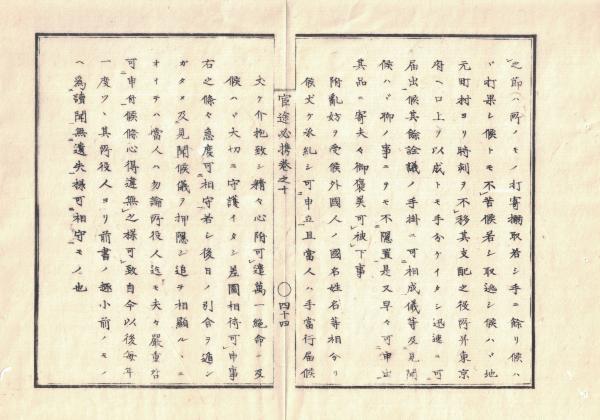 之節ハ所ノモノ打寄搦取若シ手ニ餘リ候ハ
ヾ打果シ候トモ不苦候若シ取逃シ候ハヾ地
元町村ヨリ時刻ヲ不移其支配之役所并東京
府ヘ口上ヲ以成トモ手分ケイタシ迅速ニ可
届出候其餘詮議ノ手掛ニ可相成儀等及見聞
候ハヾ聊ノ事ニテモ不隠置是又早々可申出
其品ニ寄夫々御褒美可被下事
附亂妨ヲ受候外國人ノ國名姓名等相分リ
候丈ケ承糺シ可申立且當人ハ手當行届候
官途必携巻之十
〇四十四
丈ケ介抱致シ精々心附可遣萬一絶命ニ及
候ハヾ大切ニ守護イタシ差圖相待可申事
右之條々急度可相守若シ後日ノ引合ヲ遁シ
ガタメ及見聞候儀ヲ押隠シ追テ相顯ルヽニ
オイテハ當人ハ勿論所役人迄モ夫々嚴重咎
可申付候條心得違無之樣可致自今以後毎年
一度ヅヽ其所役人ヨリ前書ノ趣小前ノモノ
ヘ為讀聞無遺失樣可相守モノ也